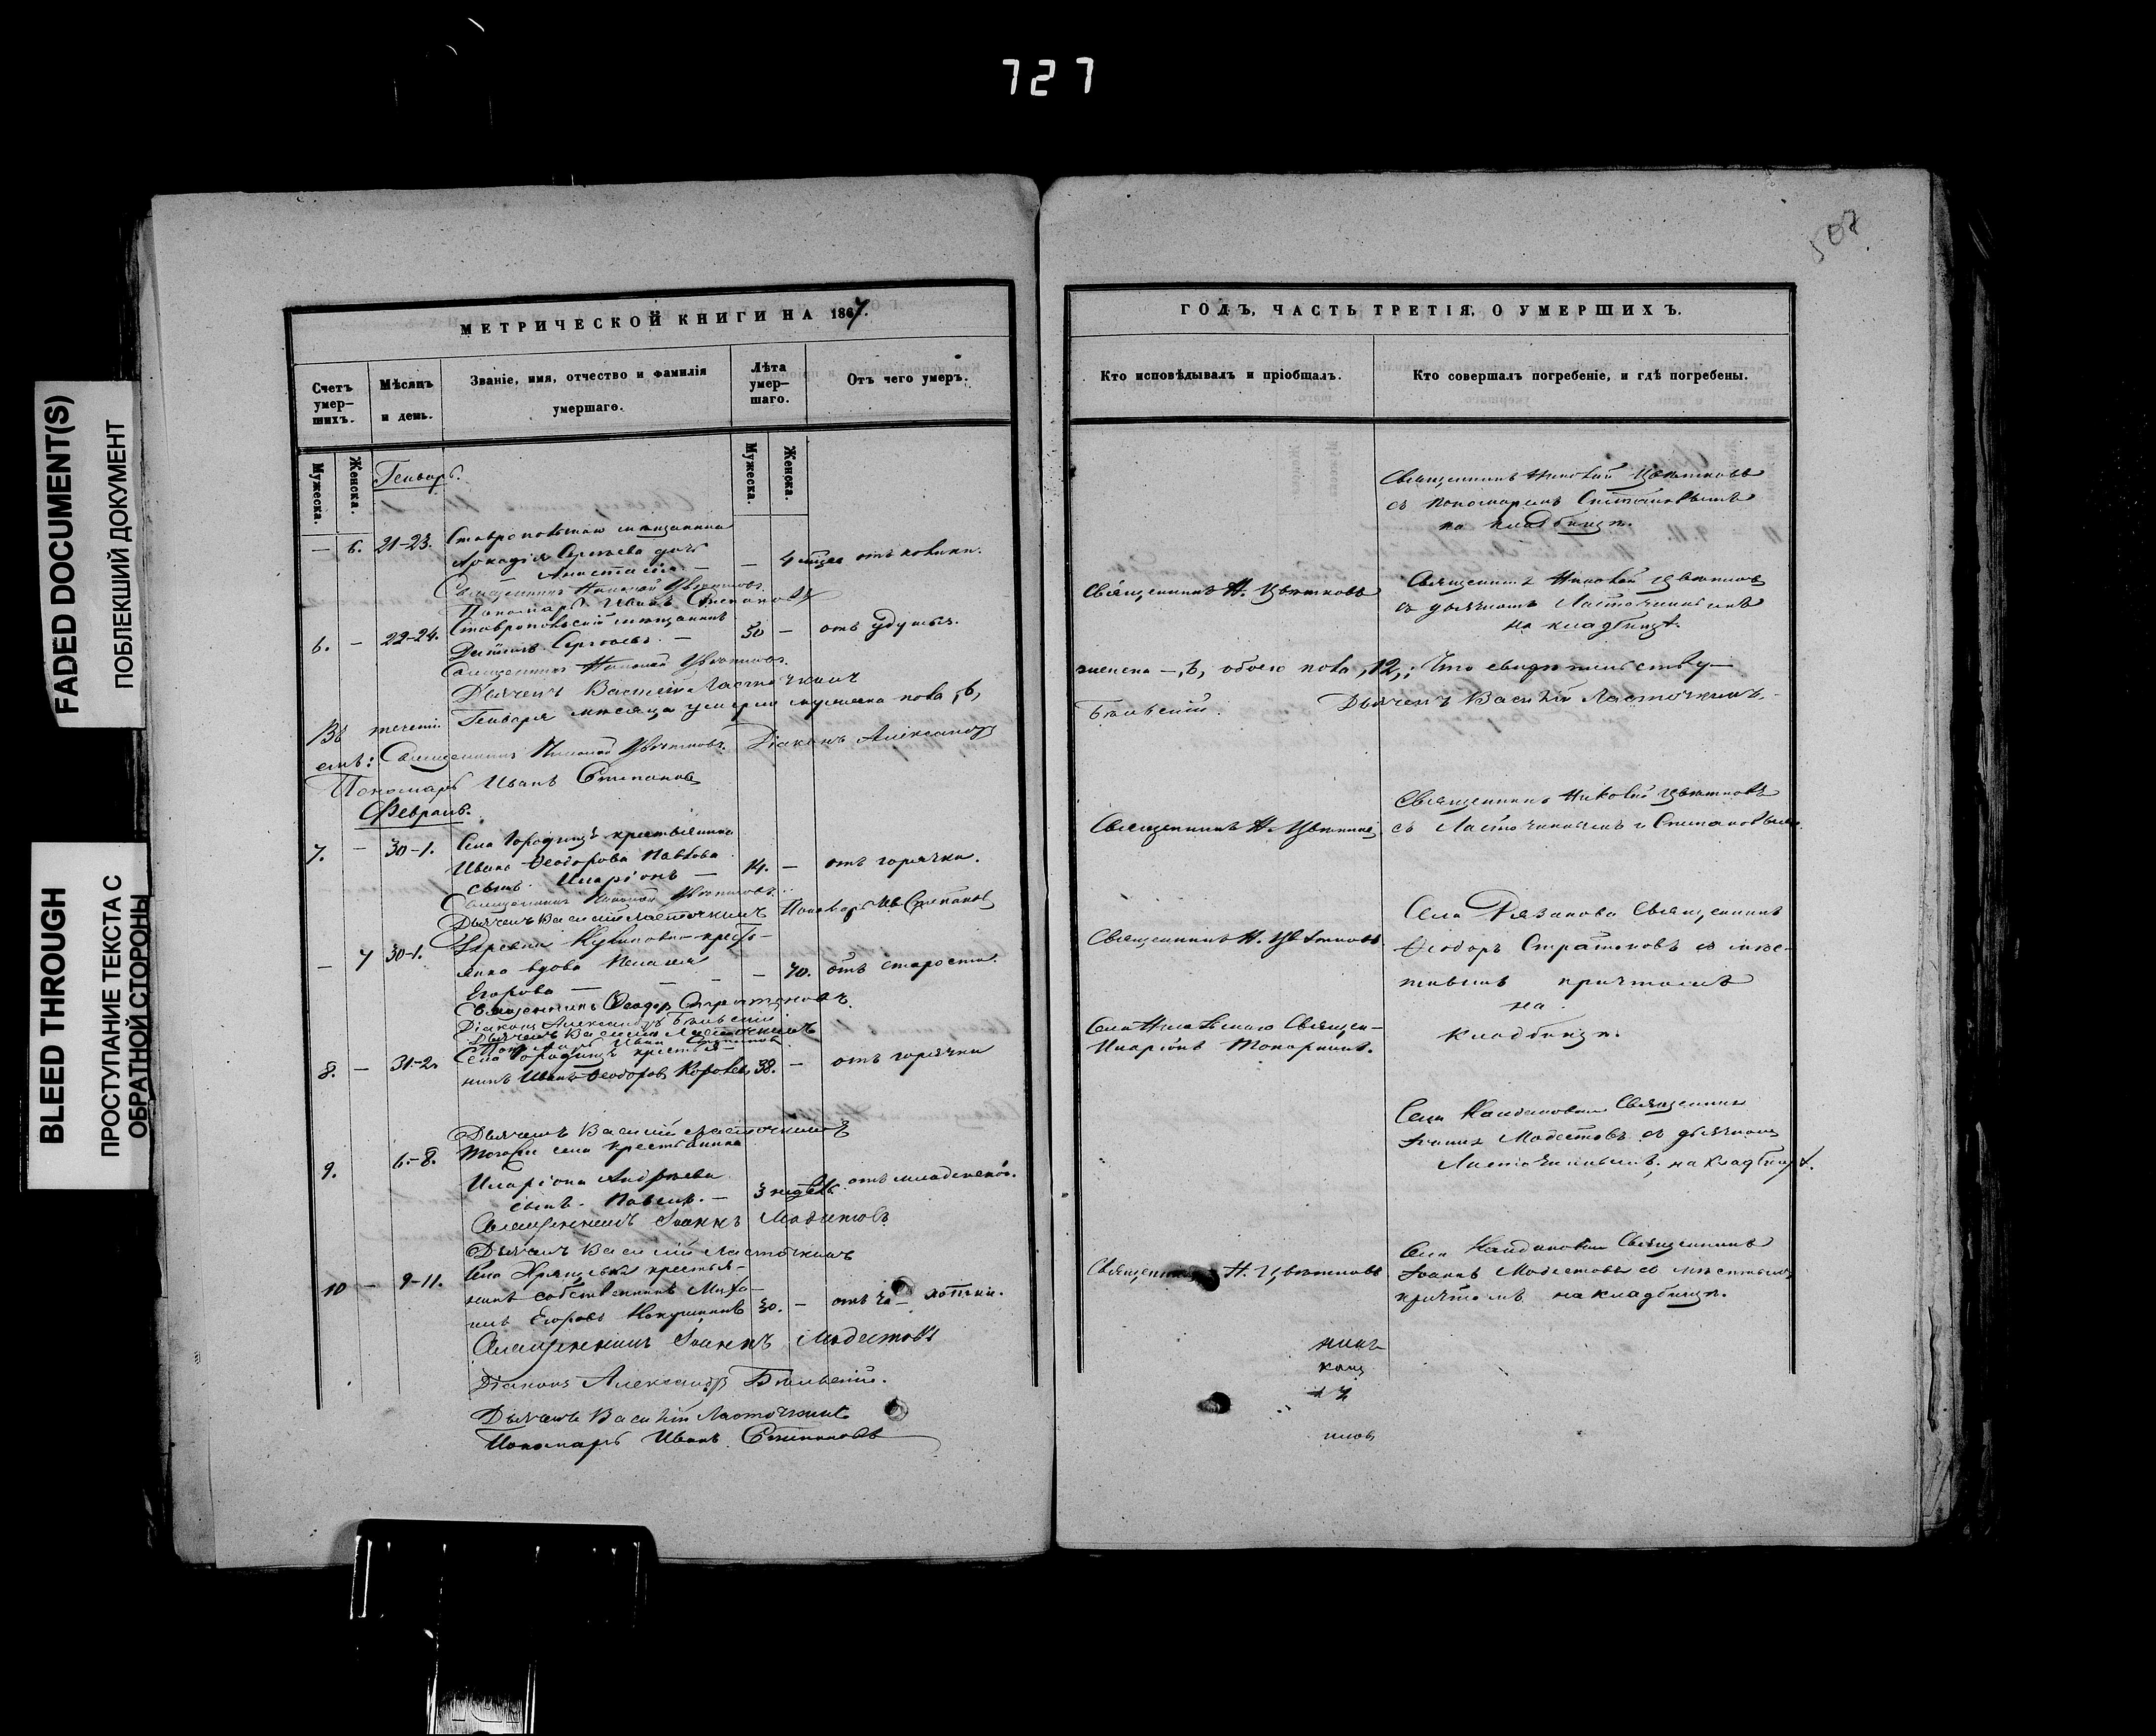 727
FADED DOCUMENT(S)
ПОБЛЕКШИЙ ДОКУМЕНТ
BLEED THROUGH
ПРОСТУПАНИЕ ТЕКСТА С
ОБРАТНОЙ СТОРОНЫ
МЕТРИЧЕСКОЙ КНИГИ НА 1867.
Счетъ умер-шихъ.
Мѣсяцъ и день.
Званіе, имя, отчество и фамилія умершаго.
Лѣта умер-шаго.
Отъ чего умеръ.
Мужеска.
Женска.
Мужеска.
Женска.
Генварь.
— 6. 21-23. Ставропольскаго мѣщанина
Аркадія Сергѣева дочь
Анастасія — — 4 отъ
Священникъ Николай Цвѣтковъ.
Пономарь Иванъ Степановъ
6. — 22-24. Ставропольскій мѣщанинъ
Сергѣевъ — 50 — отъ удушья.
Священникъ Николай Цвѣтковъ.
Дьячекъ Василій Ласточкинъ
Въ теченіи Генваря мѣсяца умерло мужеска пола, 6,
емъ: Священникъ Николай Цвѣтковъ. Діаконъ Александръ
Пономарь Иванъ Степановъ
Февраль.
7. — 30-1. Села Городищъ крестьянина
Ивана Ѳеодорова Павлова
сынъ Иларіонъ — 14. — отъ горячки.
Священникъ Николай Цвѣтковъ.
Дьячекъ Василій Ласточкинъ Пономарь Ив. Степановъ
— 7 30-1. Деревни кресть-
янка вдова Пелагея
Егорова — — — 70. отъ старости.
Священникъ Ѳеодоръ Стратоновъ.
Діаконъ Александръ Бѣльскій
Дьячекъ Василій Ласточкинъ
Пономарь Иванъ Степановъ
8. — 31-2. Села Городищъ крестья-
нинъ Иванъ Ѳеодоровъ 38. — отъ горячки
Дьячекъ Василій Ласточкинъ
9. 6.-8. Тогоже села крестьянина
Иларіона Андреева
сынъ Павелъ. — 3 недѣль отъ младенской.
Священникъ Іоаннъ Модестовъ
Дьячекъ Василій Ласточкинъ
10 — 9-11. Села Хрящевки крестья-
нинъ собственникъ Миха-
илъ Егоровъ 30. — отъ ча- хотки.
Священникъ Іоаннъ Модестовъ
Діаконъ Александръ Бѣльскій.
Дьячекъ Василій Ласточкинъ
Пономарь Иванъ Степановъ
507
ГОДЪ, ЧАСТЬ ТРЕТІЯ, О УМЕРШИХЪ.
Кто исповѣдывалъ и пріобщалъ.
Кто совершалъ погребеніе, и гдѣ погребены.
Священникъ Николай Цвѣтковъ
съ пономаремъ Степановымъ
на кладбищѣ.
Священникъ Н. Цвѣтковъ
Священникъ Николай Цвѣтковъ
съ дьячкомъ Ласточкинымъ
на кладбищѣ.
женска — 6, обоего пола, 12,; Что свидѣтельству-
Бѣльскій. Дьячекъ Василій Ласточкинъ.
Священникъ Н. Цвѣтковъ
Священникъ Николай Цвѣтковъ
съ Ласточкинымъ и Степановымъ.
Священникъ Н. Цвѣтковъ
Села Рязанова Священникъ
Ѳеодоръ Стратоновъ съ мѣс-
тнымъ причтомъ
на
кладбищѣ.
Священ-
Иларіонъ
Села Священникъ
Іоаннъ Модестовъ съ дьячкомъ
Ласточкинымъ; на кладбищѣ.
Священникъ Н. Цвѣтковъ
Села Священникъ
Іоаннъ Модестовъ съ мѣстнымъ
причтомъ на кладбищѣ.